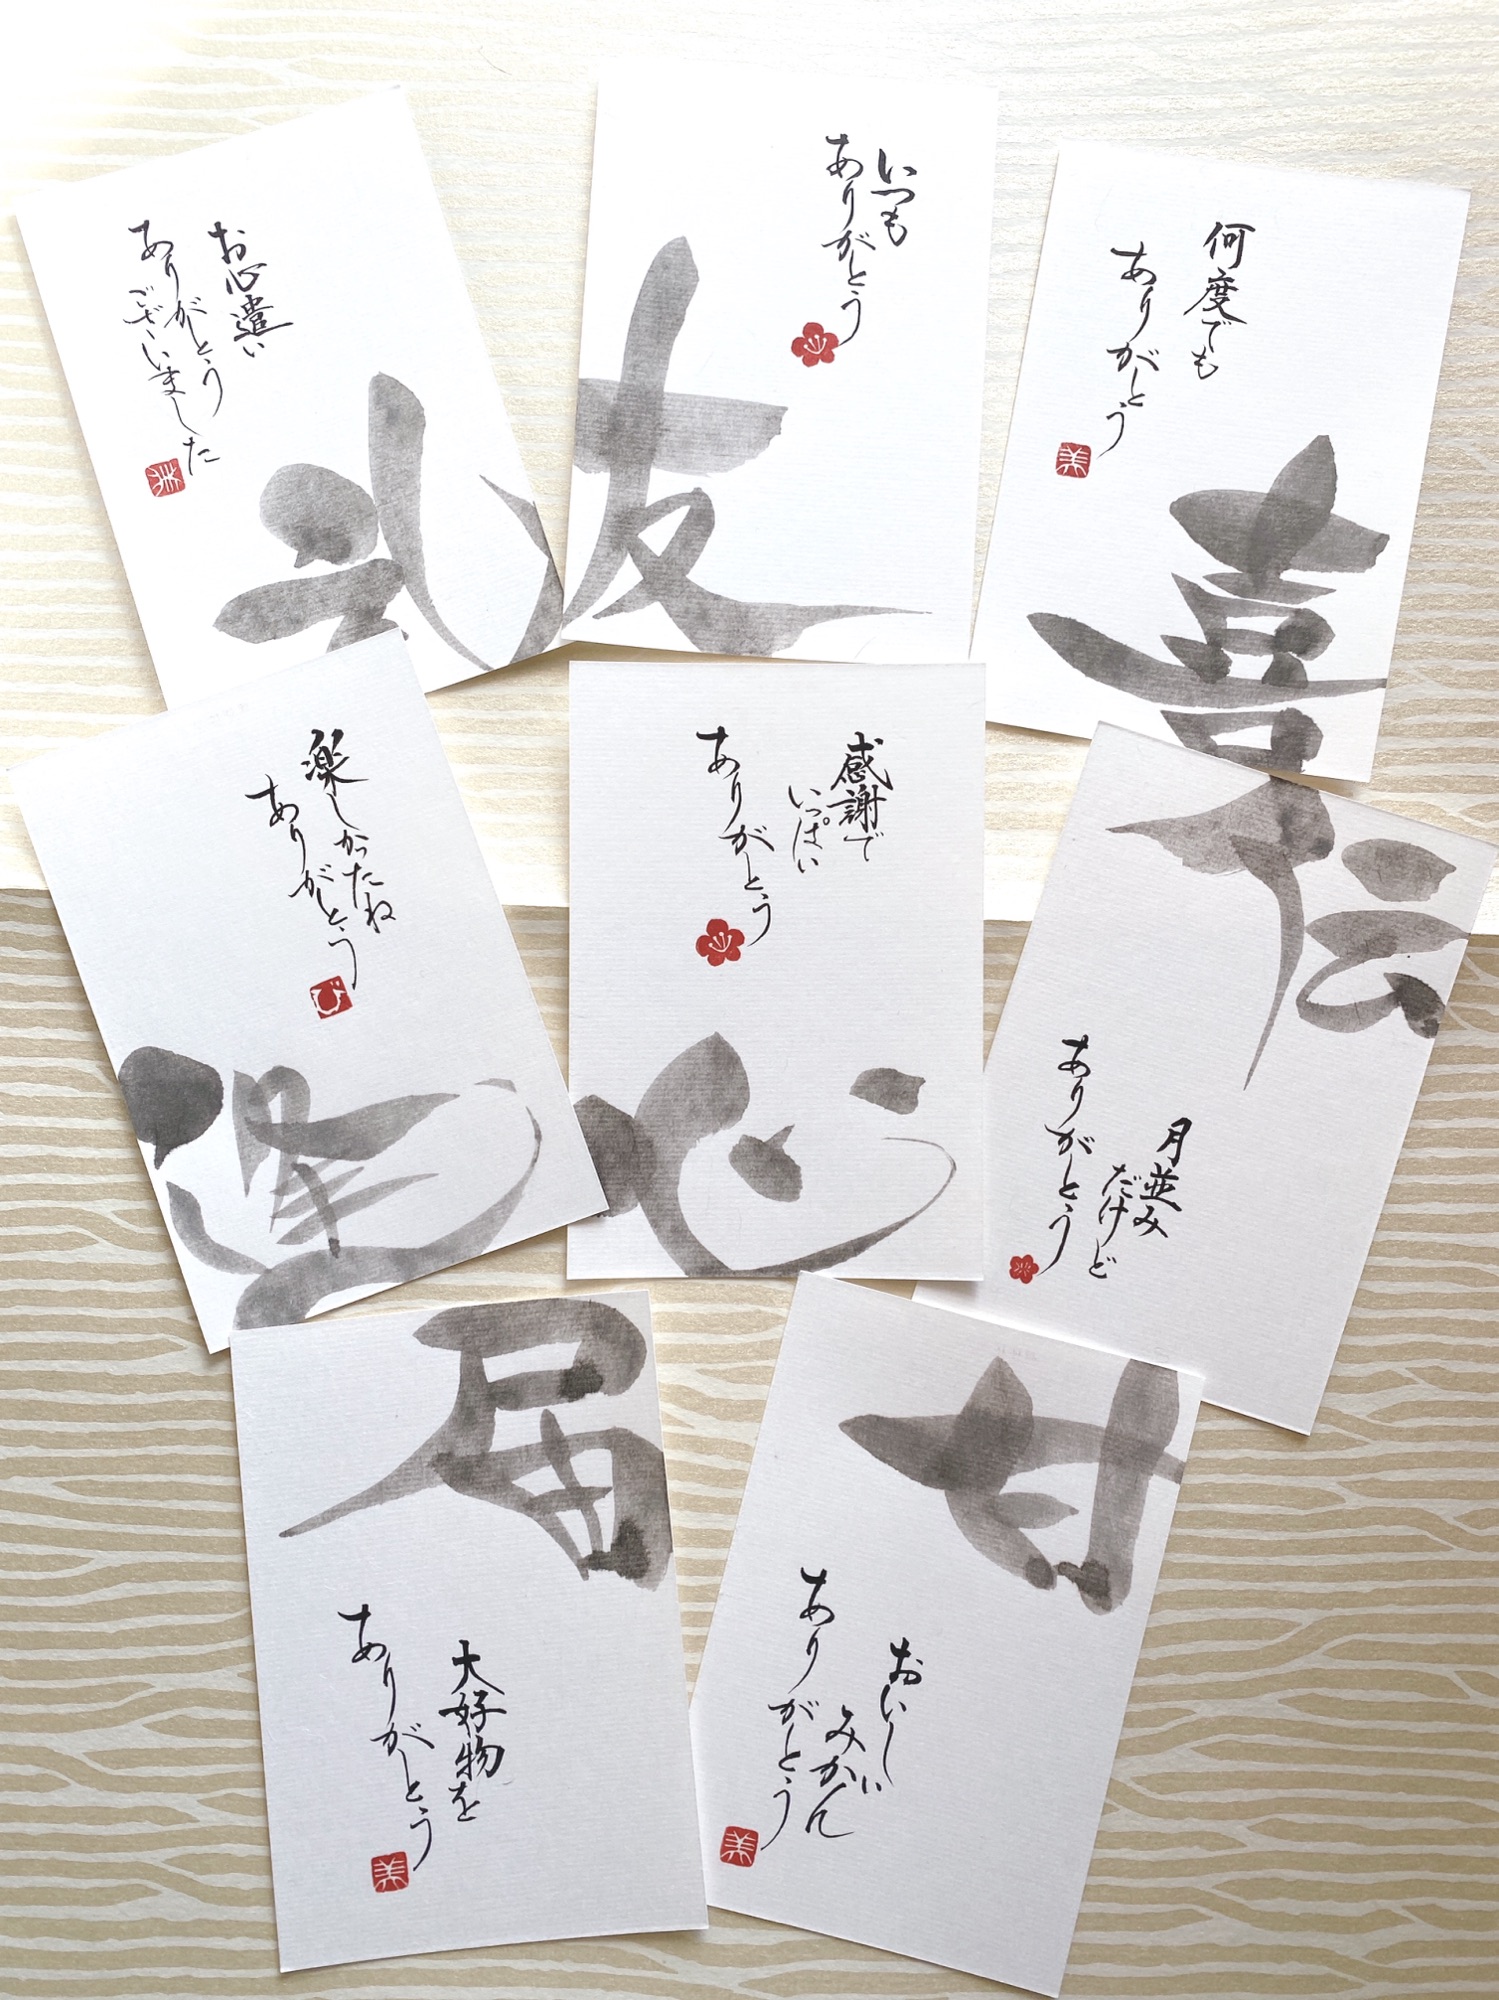 お心遣い
ありがとう
ございました
礼
いつも
ありがとう
友
何度でも
ありがとう
美
喜
楽しかったね
ありがとう
び
逢
感謝で
いっぱい
ありがとう
心
伝
月並み
だけど
ありがとう
届
大好物を
ありがとう
美
甘
おいしい
みかん
ありがとう
美